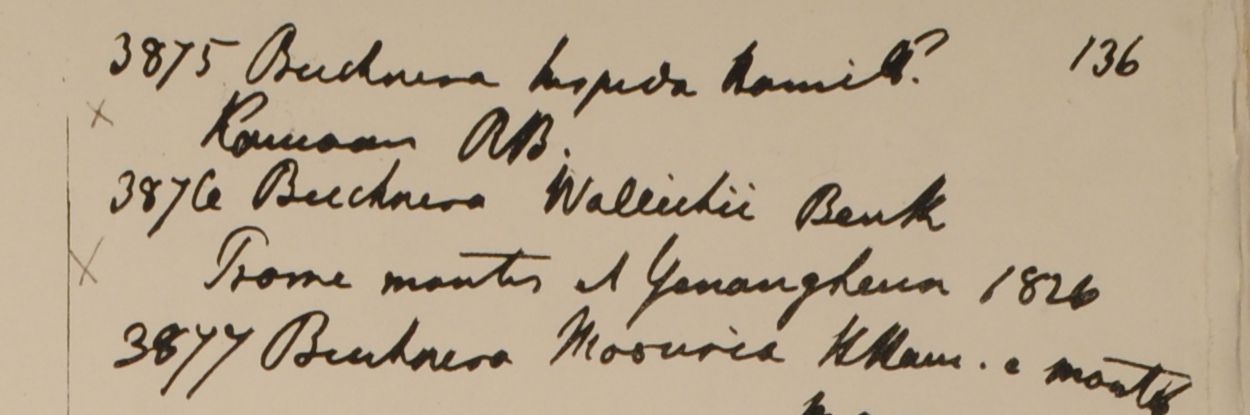 3875 Buchnera hispida Hamilt? 136
Kamaon RB.
3876 Buchnera Wallichii Benth
Prome montes et Yenangheun 1826
3877 Buchnera Moourica HHam. e montib